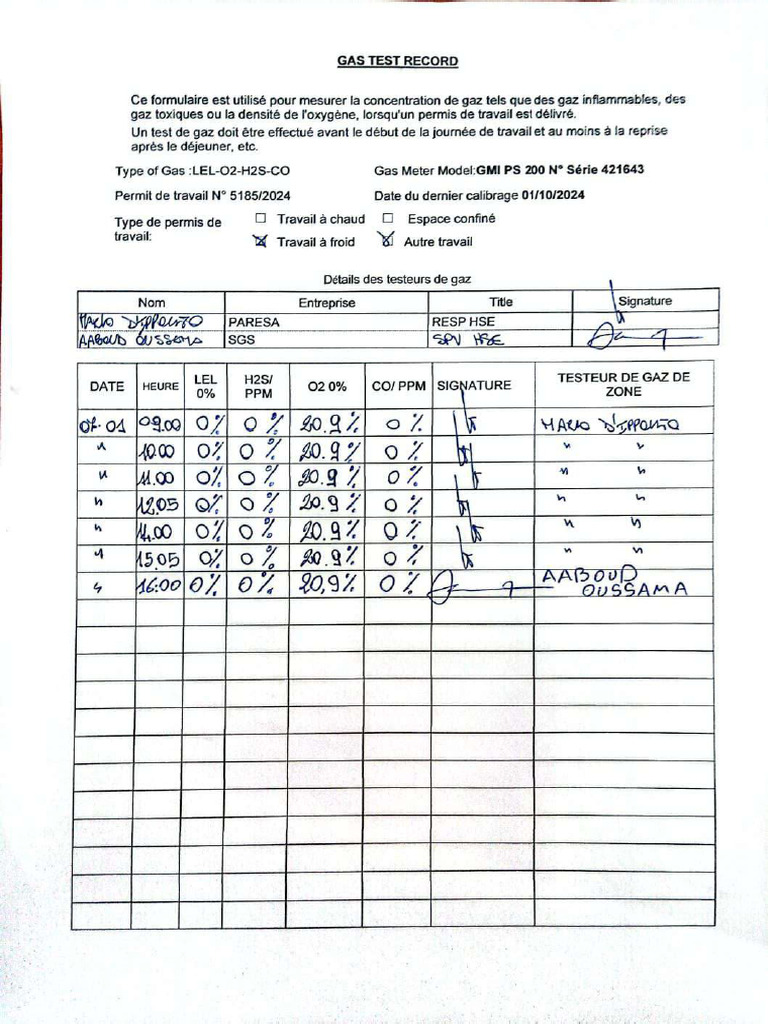 GAS TEST RECORD
Ce formulaire est utilisé pour mesurer la concentration de gaz tels que des gaz inflammables, des
gaz toxiques ou la densité de l'oxygène, lorsqu'un permis de travail est délivré.
Un test de gaz doit être effectué avant le début de la journée de travail et au moins à la reprise
après le déjeuner, etc.
Type of Gas :LEL-O2-H2S-CO Gas Meter Model:GMI PS 200 N° Série 421643
Permit de travail N° 5185/2024 Date du dernier calibrage 01/10/2024
Type de permis de travail: ☐ Travail à chaud ☐ Espace confiné
☒ Travail à froid ☒ Autre travail
Détails des testeurs de gaz
Nom Entreprise Title Signature
MARIO D'IPPOLITO PARESA RESP HSE
AABOUD OUSSAMA SGS SPV HSE
DATE HEURE LEL 0% H2S/ PPM O2 0% CO/ PPM SIGNATURE TESTEUR DE GAZ DE ZONE
07-01 09.00 0% 0% 20.9% 0% MARIO D'IPPOLITO
" 10.00 0% 0% 20.9% 0% " "
" 11.00 0% 0% 20.9% 0% " "
" 12.05 0% 0% 20.9% 0% " "
" 14.00 0% 0% 20.9% 0% " "
" 15.05 0% 0% 20.9% 0% " "
" 16:00 0% 0% 20,9% 0% AABOUD OUSSAMA